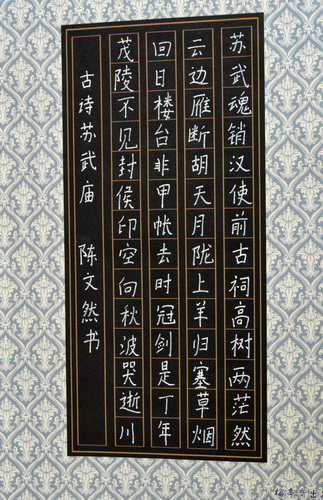 苏武魂销汉使前古祠高树两茫然
云边雁断胡天月陇上羊归塞草烟
回日楼台非甲帐去时冠剑是丁年
茂陵不见封侯印空向秋波哭逝川
古诗苏武庙 陈文然书